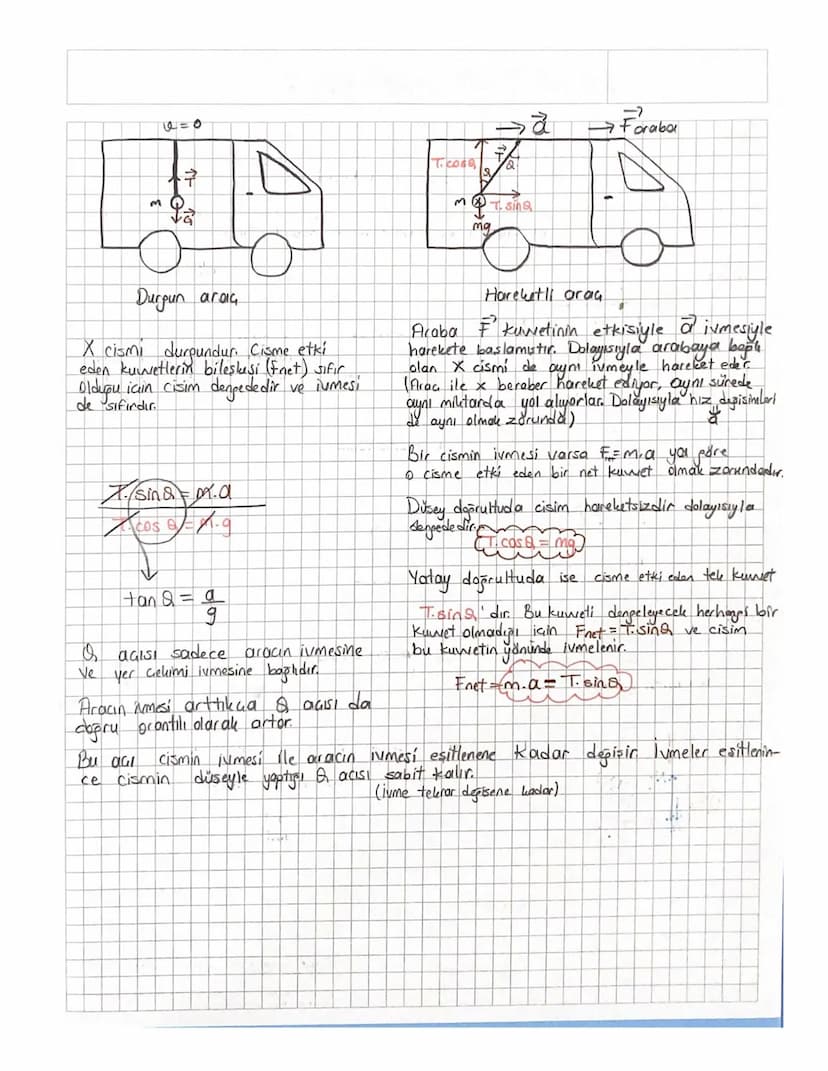 ϑ = 0
T
m
G
Durgun araç
X cismi durgundur. Cisme etki
eden kuvvetlerin bileşkesi (Fnet) sıfır
Olduğu için cisim dengededir ve ivmesi
de sıfırdır.
T. sinθ = m.a
T. cos θ = m.g
tan θ = a/g
θ açısı sadece aracın ivmesine
ve yer çekimi ivmesine bağlıdır.
Aracın ivmesi arttıkça θ açısı da
doğru orantılı olarak artar.
a
Faraba
T.cosθ
T
θ
θ
m
x
T.sinθ
mg
Hareketli araç
Araba F kuvvetinin etkisiyle a ivmesiyle
harekete baslamıstır. Dolayısıyla arabaya bağlı
olan X cismi de aynı ivmeyle hareket eder.
(Araç ile x beraber hareket ediyor, aynı sürede
aynı miktarda yol alıyorlar. Dolayısıyla hız değisimleri
de aynı olmak zorunda)
a
Bir cismin ivmesi varsa F=m.a ya göre
o cisme etki eden bir net kuvvet olmak zorundadır.
Düsey doğrultuda cisim hareketsizdir dolayısıyla
dengededir.
T.cosθ = mg
Yatay doğrultuda ise cisme etki eden tek kuvvet
T.sinθ' dır. Bu kuvveti dengeleyecek herhangi bir
Kuvvet olmadığı için Fnet = T.sinθ ve cisim
bu kuvvetin yönünde ivmelenir.
Fnet = m.a = T.sinθ
Bu açı cismin ivmesi ile aracın ivmesi eşitlenene kadar değişir. İvmeler esitlenin-
ce cismin düseyle yaptığı θ açısı sabit kalır.
(ivme tekrar değisene kadar)